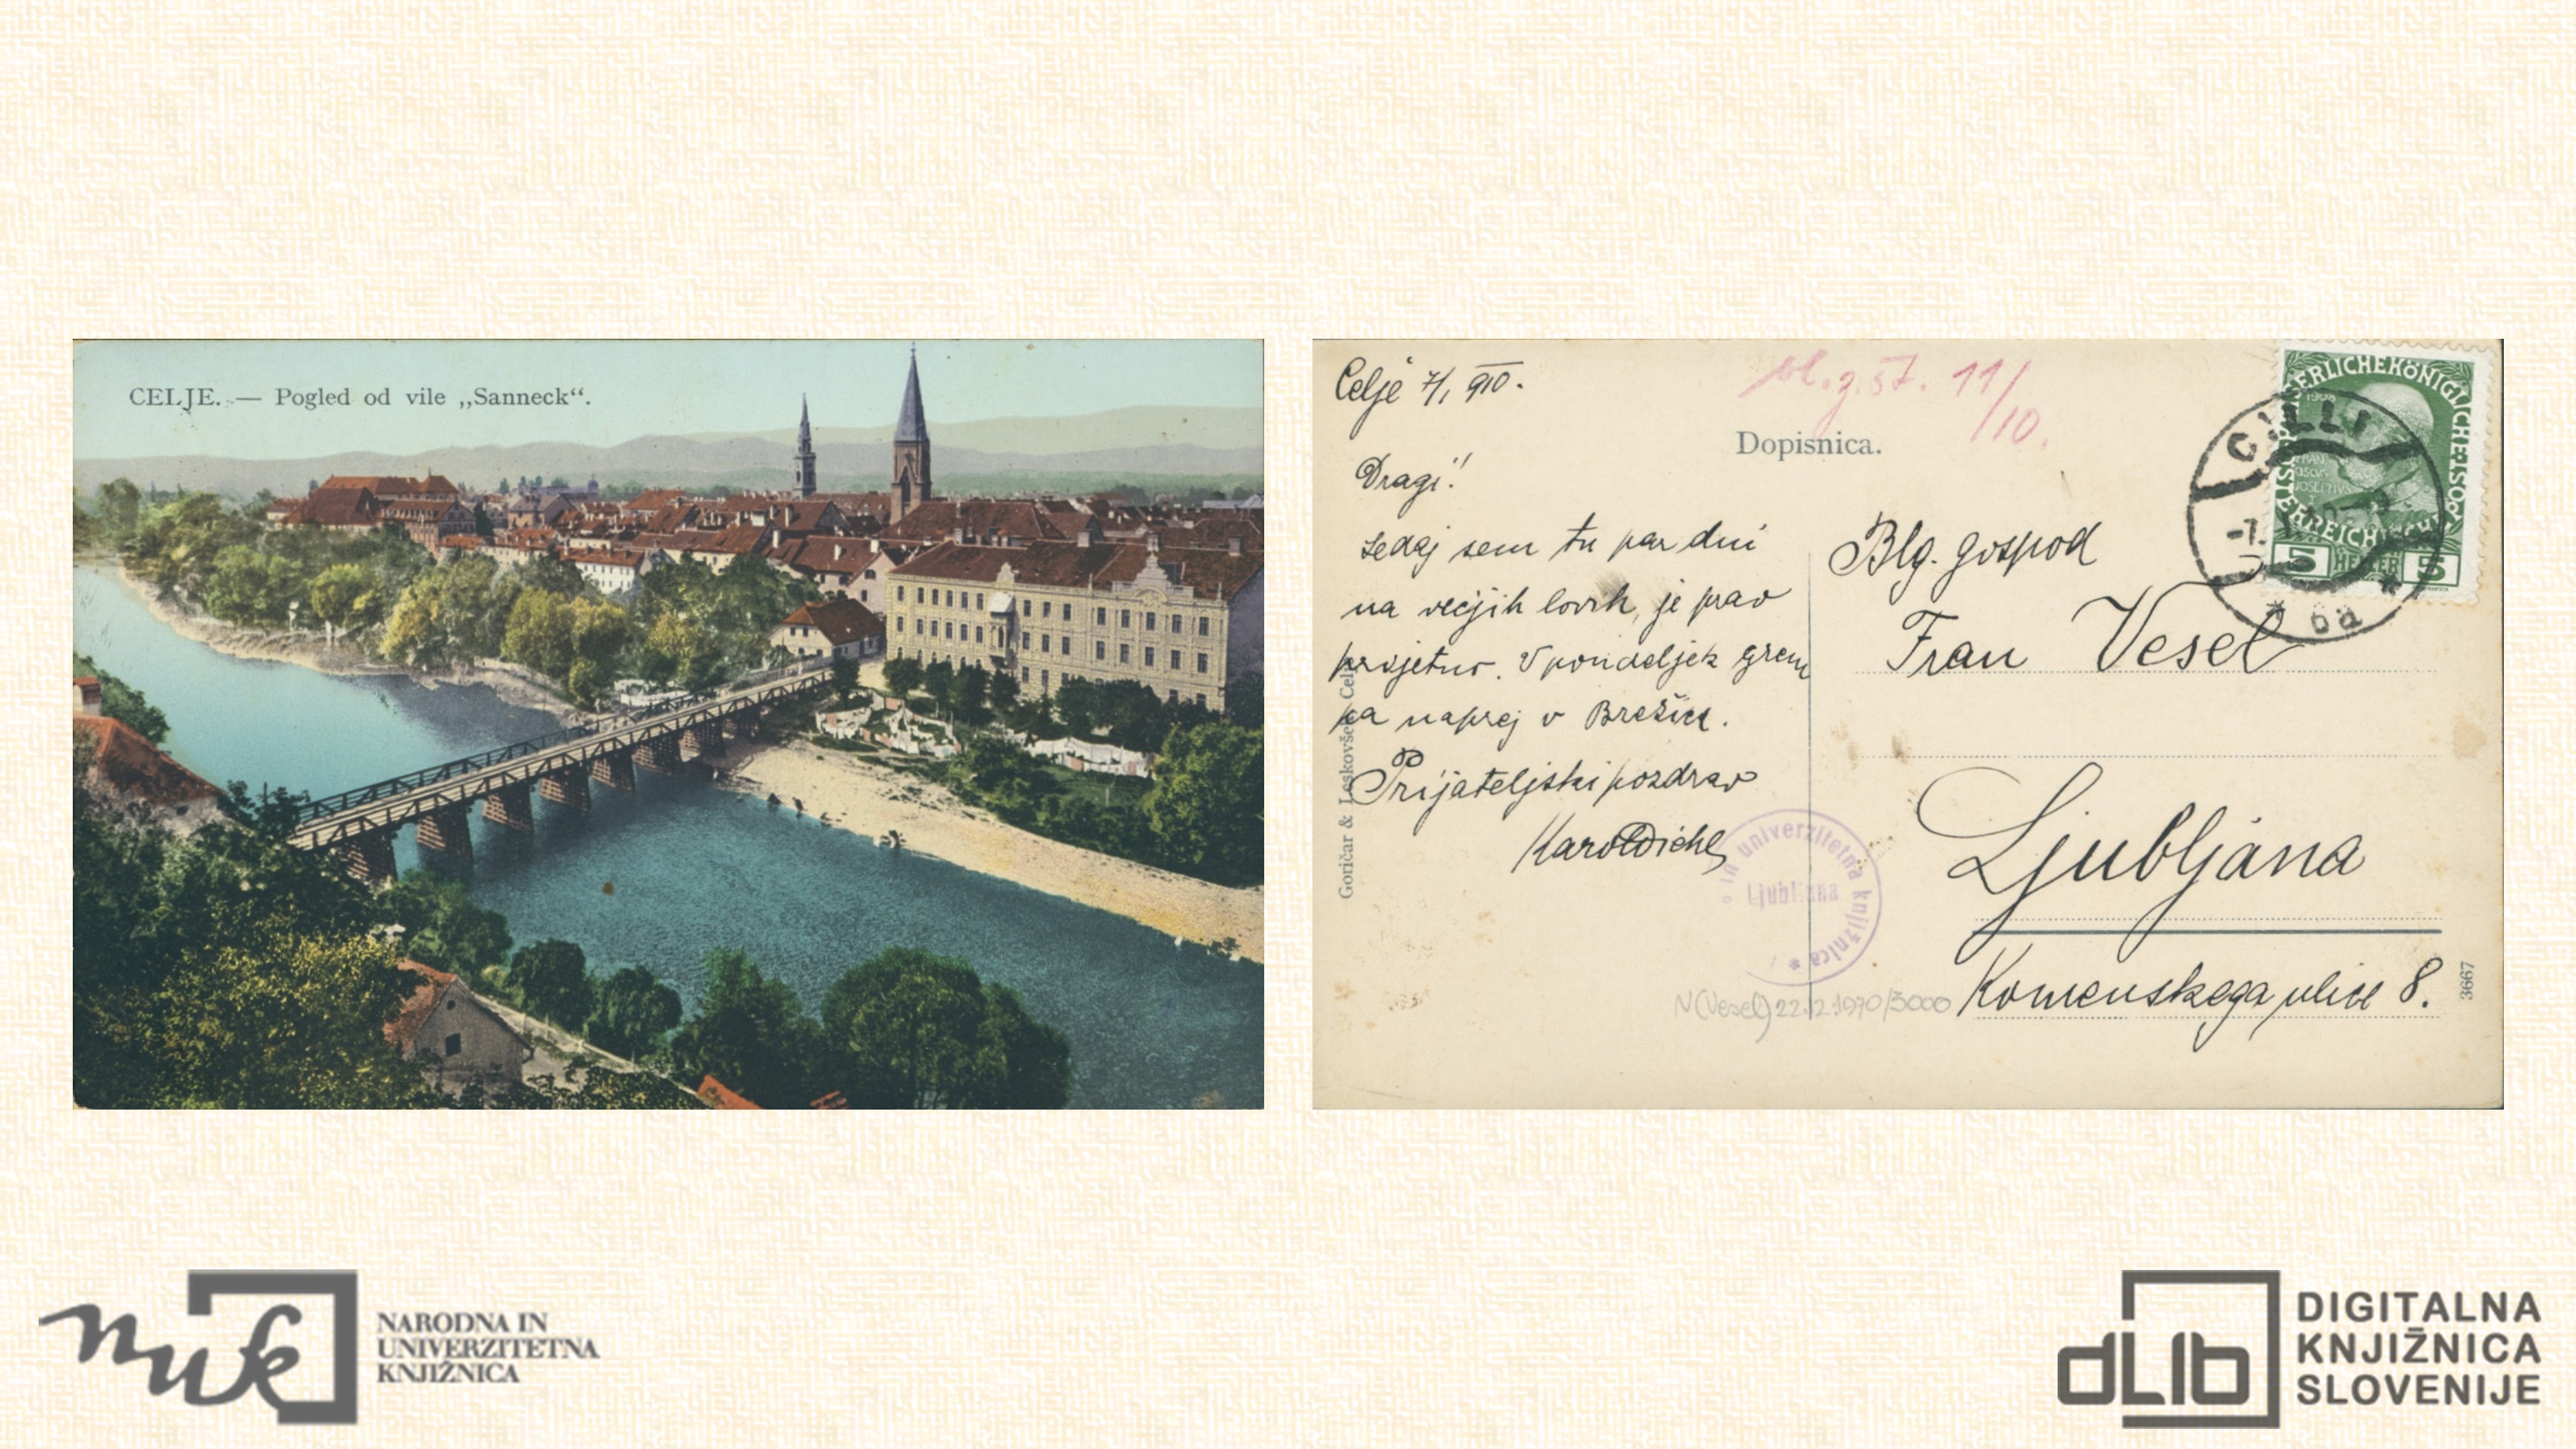 CELJE. — Pogled od vile „Sanneck“.
Celje 7/1 910.
Dragi!
sedaj sem tu par dni
na večjih lovih, je prav
prijetno. V pondeljek grem
pa naprej v Brežice.
Prijateljski pozdrav
Karol
Goričar & Leskovšek, Celje
11/10.
Dopisnica.
KAISERLICHE KÖNIGLICHE ÖSTERREICHISCHE POST
1908
5 HELLER 5
CILLI
-7.
* 6a *
Blg. gospod
Fran Vesel
Ljubljana
Komenskega ulice 8.
3667
in univerzitetna knjižnica *
Ljubljana
N(Vesel) 22.12.1970/3000
nuk
NARODNA IN
UNIVERZITETNA
KNJIŽNICA
dLIb
DIGITALNA
KNJIŽNICA
SLOVENIJE